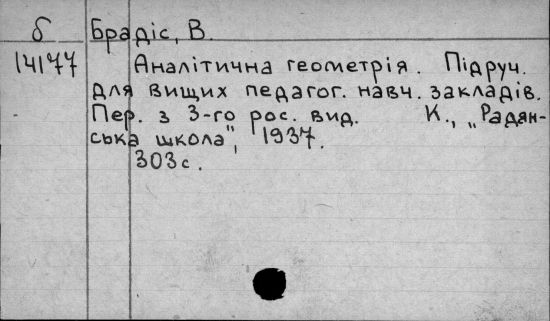 б Брадіс, В.
14177 Аналітична геометрія. Підруч.
для вищих педагог. навч. закладів.
Пер. з 3-го рос. вид. К., „Радян-
ська школа", 1937.
303с.